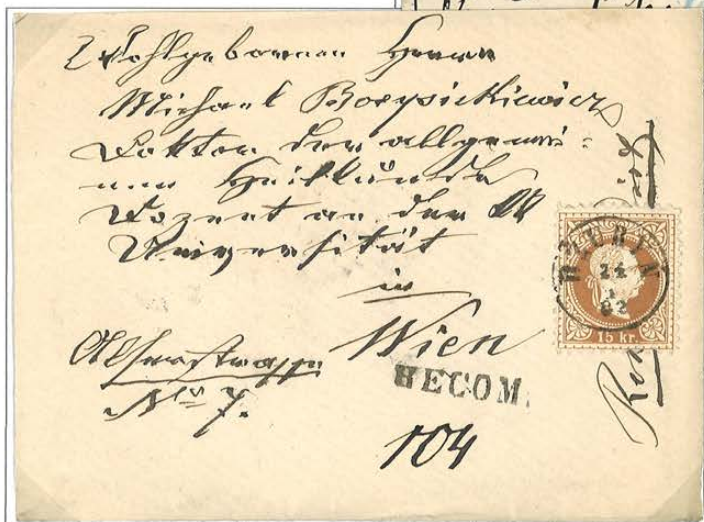 Wohlgebornen Herrn
Michael Borysiekiewicz
Doktor der allgemei-
nen Heilkunde
Dozent an der
Universität
in
Wien
Alserstrasse
No 7.
RECOM.
104
24
1
82
15 kr.